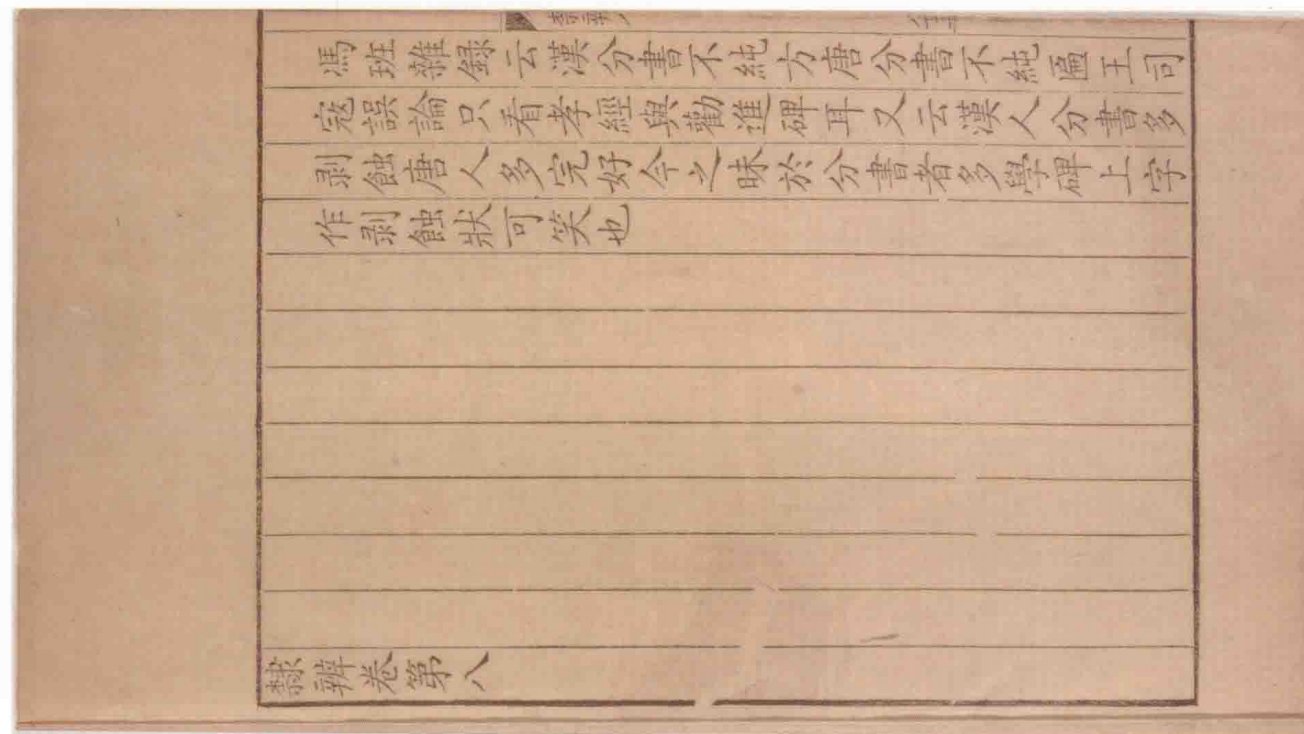 馮班雜録云漢分書不純方唐分書不純匾王司
寇誤論只看孝經與勸進碑耳又云漢人分書多
剥蝕唐人多完好今之昧於分書者多學碑上字
作剥蝕狀可笑也
隸辨卷第八